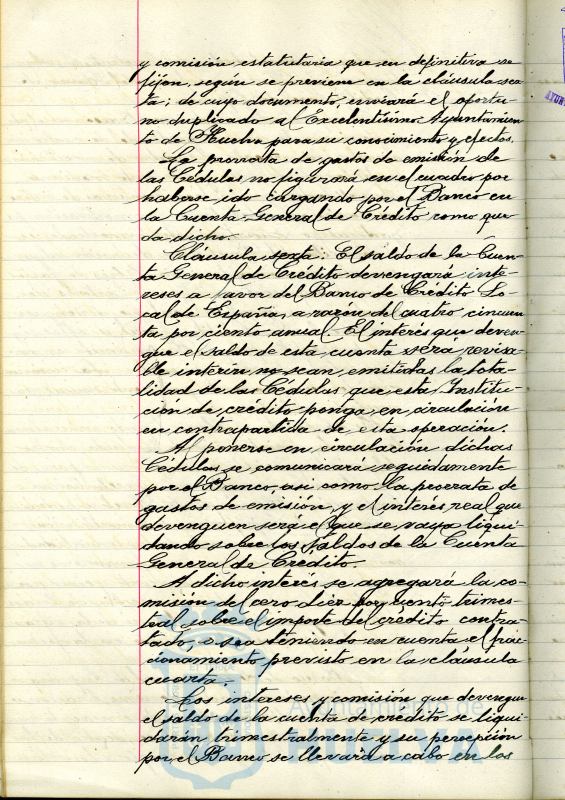 y comisión estatutaria que en definitiva se
fijen, según se previene en la cláusula sex-
ta; de cuyo documento, enviará el oportu-
no duplicado al Excelentísimo Ayuntamien-
to de Huelva para su conocimiento y efectos.
La prorrata de gastos de emisión de
las Cédulas no figurará en el cuadro por
haberse ido cargando por el Banco en
la Cuenta General de Crédito como que-
da dicho.
Cláusula sexta: El saldo de la Cuen-
ta General de Crédito devengará inte-
reses a favor del Banco de Crédito Lo-
cal de España, a razón del cuatro cincuen-
ta por ciento anual. El interés que deven-
gue el saldo de esta cuenta será revisa-
ble interin no sean emitidas la tota-
lidad de las Cédulas que esta Institu-
ción de crédito ponga en circulación
en contrapartida de esta operación.
Al ponerse en circulación dichas
Cédulas se comunicará seguidamente
por el Banco, asi como la prorrata de
gastos de emisión, y el interés real que
devenguen será el que se vaya liqui-
dando sobre los saldos de la Cuenta
General de Crédito.
A dicho interés se agregará la co-
misión del cero diez por ciento trimes-
tral sobre el importe del crédito contra-
tado, o sea teniendo en cuenta el frac-
cionamiento previsto en la cláusula
cuarta.
Los intereses y comisión que devengue
el saldo de la cuenta de crédito se liqui-
darán trimestralmente y su percepción
por el Banco se llevará a cabo en los
Ayuntamiento de
HUELVA